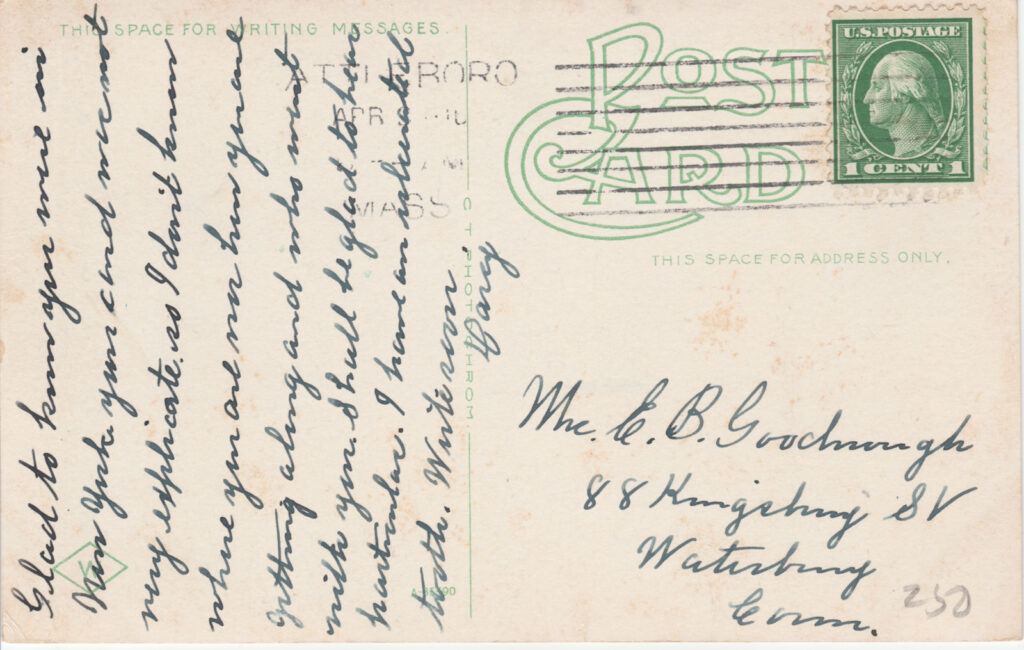 THIS SPACE FOR WRITING MESSAGES
Glad to know you were in
New York. your card was not
very explicate. so I don't know
where you are nor how you are
getting along and who went
with you. Shall be glad to hear
particular. I have an ulcerated
tooth. Write soon
Gary
ATTLEBORO
APR
AM
MASS
C T PHOTOCHROM
POST
CARD
U.S. POSTAGE
1 CENT 1
THIS SPACE FOR ADDRESS ONLY.
Mr. E. B. Goodnough
88 Kingsbury St
Waterbury
Conn.
250